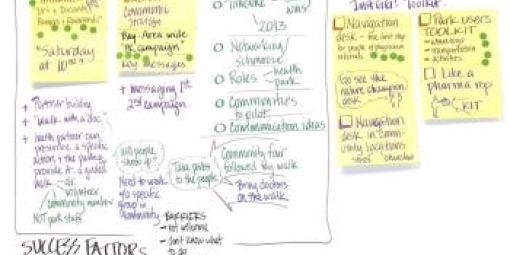 "Saturday
at 10?"
+ Partner building
+ "Walk with a doc"
+ health partner can
prescribe a specific
action & the parks
provide it - a guided
walk - or
volunteer
community member
NOT park staff
strategy
Bay Area wide
PR campaign
Key messages
+ messaging 1st
2nd campaign
Will people
show up?
Need to work
w/a specific
group in
community
Take parks
to the people
2013
Networking/
schmooze
Roles - health
park
Communities
to pilot
Communication ideas
Community fair
followed by walk
Bring doctors
on the walk
BARRIERS
- not welcome
- don't know what
to do
SUCCESS FACTORS
Navigation
desk - the first stop
for people w/
referrals
Go see the
nature champion
desk
Navigation
desk in com-
munity locations
churches
Park users
TOOLKIT
- transportation
- activities
Like a
pharma rep
KIT